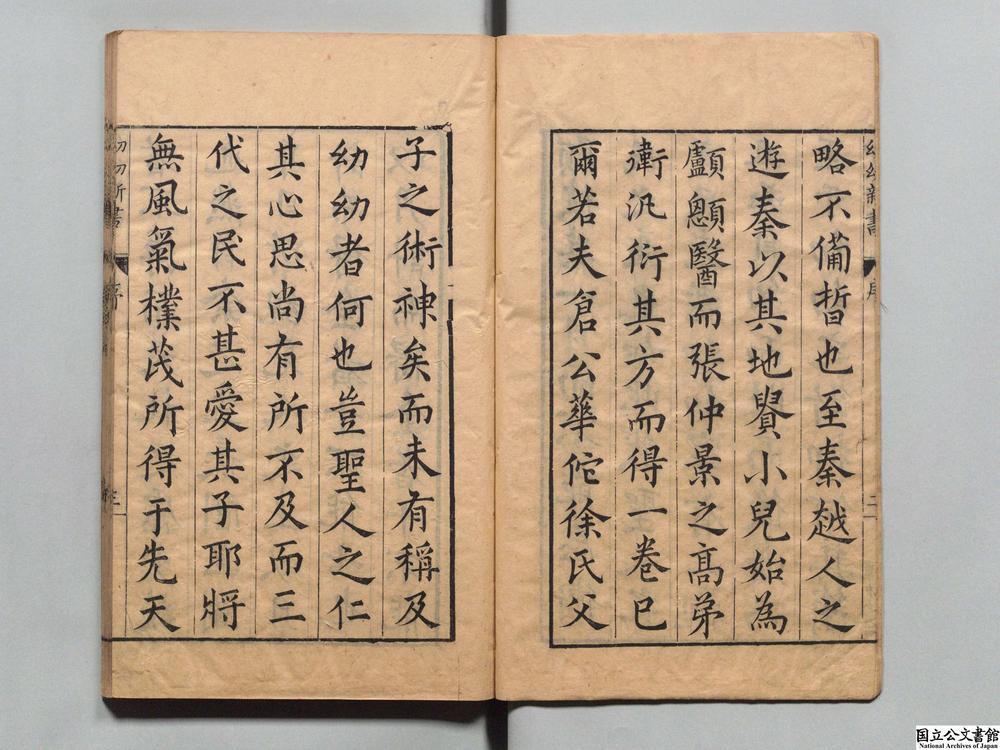 幼幼新書
序
二
略不備晳也至秦越人之
遊秦以其地貴小兒始為
顱顖醫而張仲景之高弟
衛汎衍其方而得一卷已
爾若夫倉公華佗徐氏父
子之術神矣而未有稱及
幼幼者何也豈聖人之仁
其心思尚有所不及而三
代之民不甚愛其子耶將
無風氣樸茂所得于先天
幼幼新書
序
三
国立公文書館
National Archives of Japan